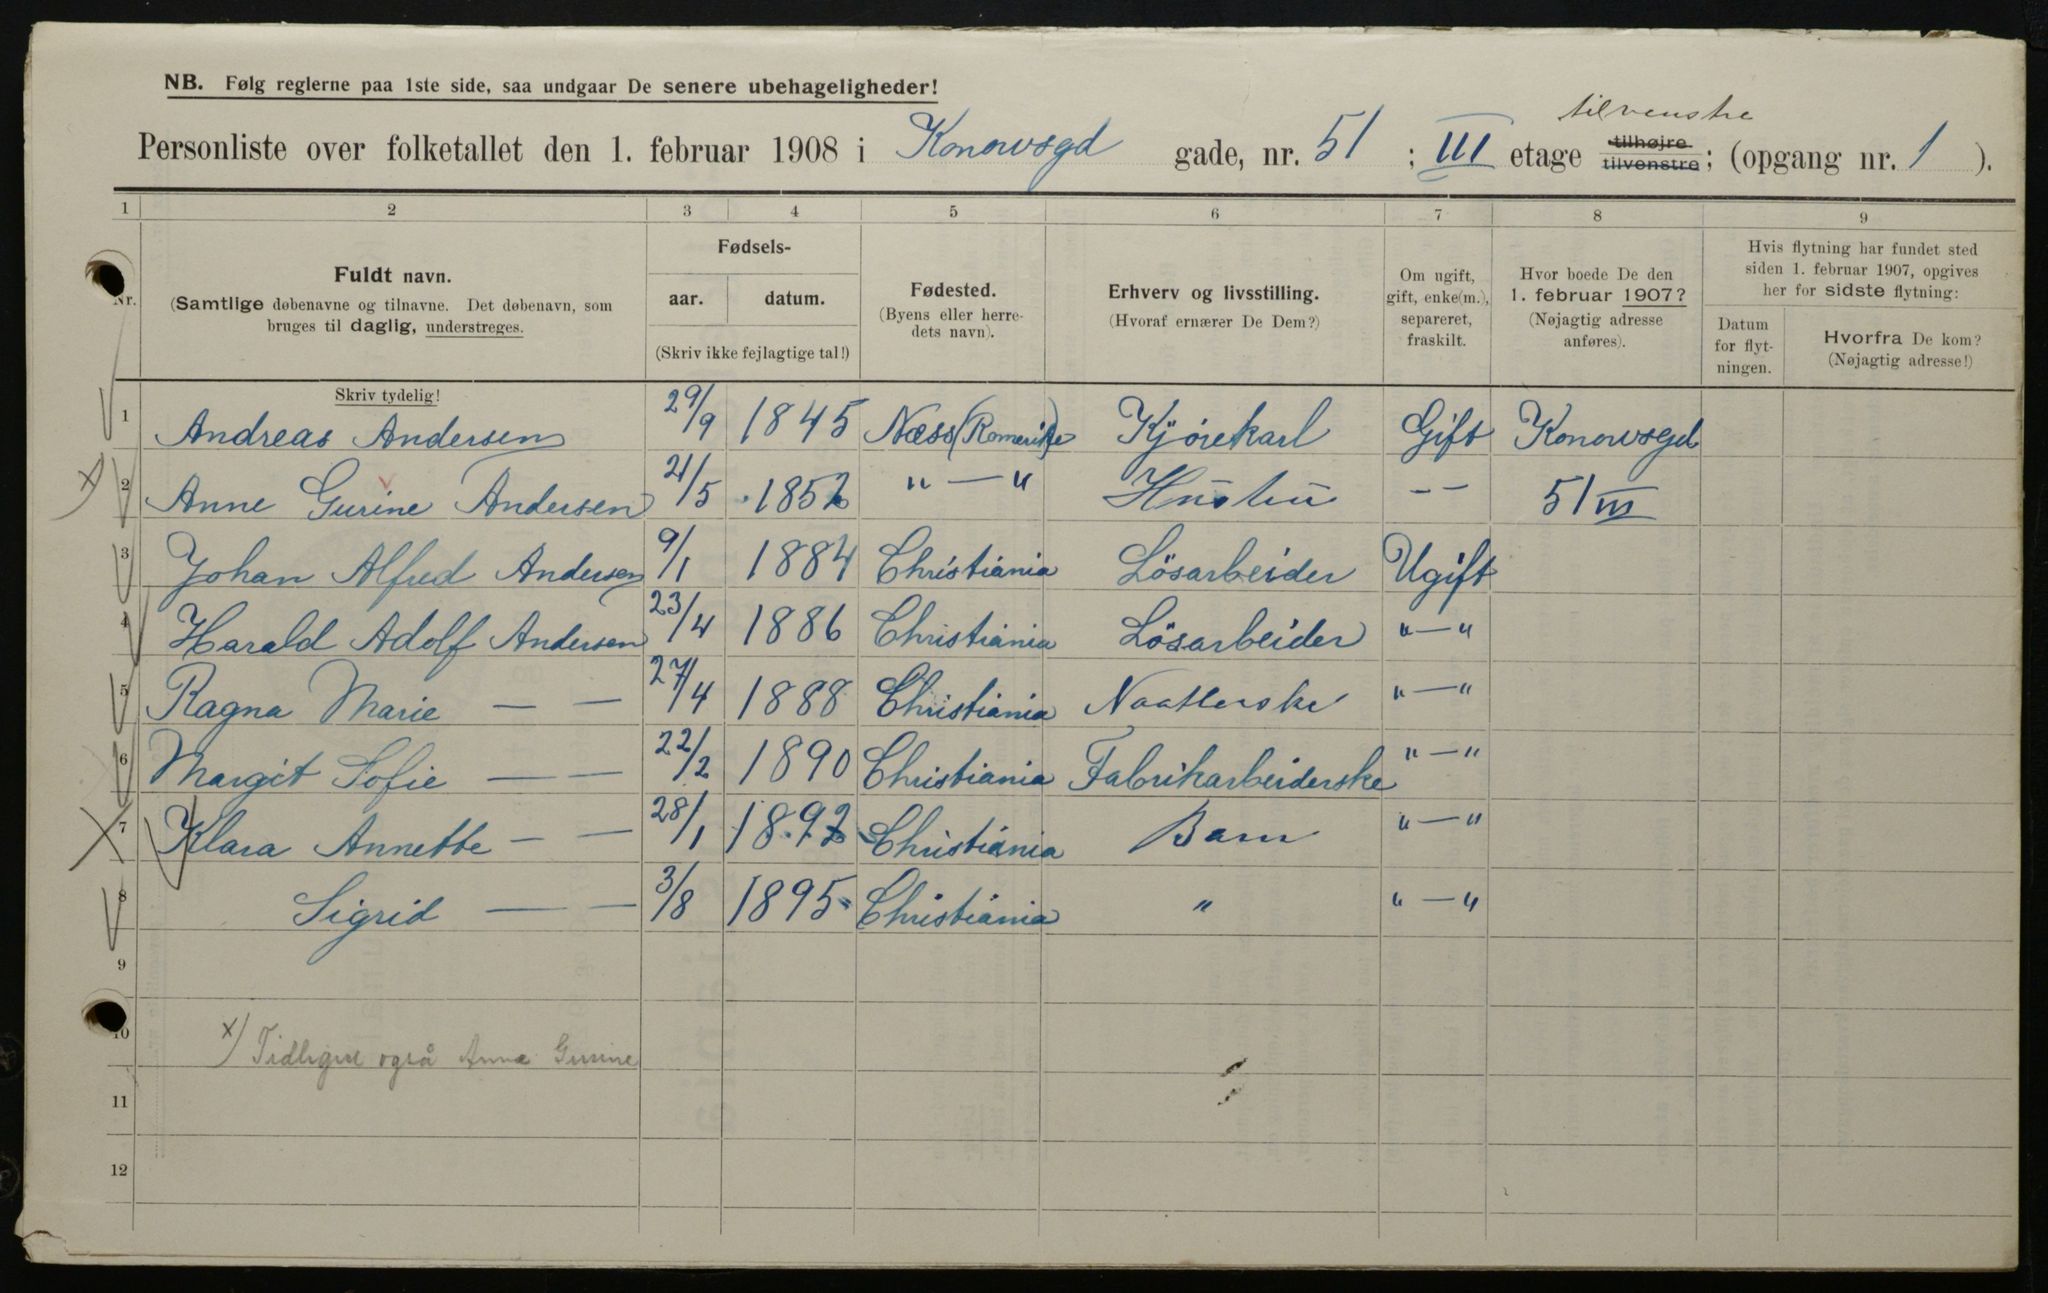 NB. Følg reglerne paa 1ste side, saa undgaar De senere ubehageligheder!
tilvenstre
Personliste over folketallet den 1. februar 1908 i Konowsgd gade, nr. 51 ; III etage tilhøjre tilvenstre ; (opgang nr. 1 ).
1 2 3 4 5 6 7 8 9
Nr.
Fuldt navn.
(Samtlige døbenavne og tilnavne. Det døbenavn, som
bruges til daglig, understreges.
Fødsels-
aar. datum.
(Skriv ikke fejlagtige tal!)
Fødested.
(Byens eller herre-
dets navn).
Erhverv og livsstilling.
(Hvoraf ernærer De Dem?)
Om ugift,
gift, enke(m.),
separeret,
fraskilt.
Hvor boede De den
1. februar 1907?
(Nøjagtig adresse
anføres).
Hvis flytning har fundet sted
siden 1. februar 1907, opgives
her for sidste flytning:
Datum
for flyt-
ningen.
Hvorfra De kom?
(Nøjagtig adresse!)
Skriv tydelig!
1 Andreas Andersen 29/9 1845 Næss (Romerike) Kjørekarl Gift Konowsgd
x) 2 Anne Gurine Andersen 21/5 1852 " — " Hustru -- 51 III
3 Johan Alfred Andersen 9/1 1884 Christiania Lösarbeider Ugift
4 Harald Adolf Andersen 23/4 1886 Christiania Lösarbeider " — "
5 Ragna Marie — — 27/4 1888 Christiania Naatlerske " — "
6 Margit Sofie — — 22/2 1890 Christiania Fabrikarbeiderske " — "
7 Klara Annette — — 28/1 1892 Christiania Barn " — "
8 Sigrid — — 3/8 1895 Christiania " " — "
9
10
x) Tidligere også Anna Gurine
11
12